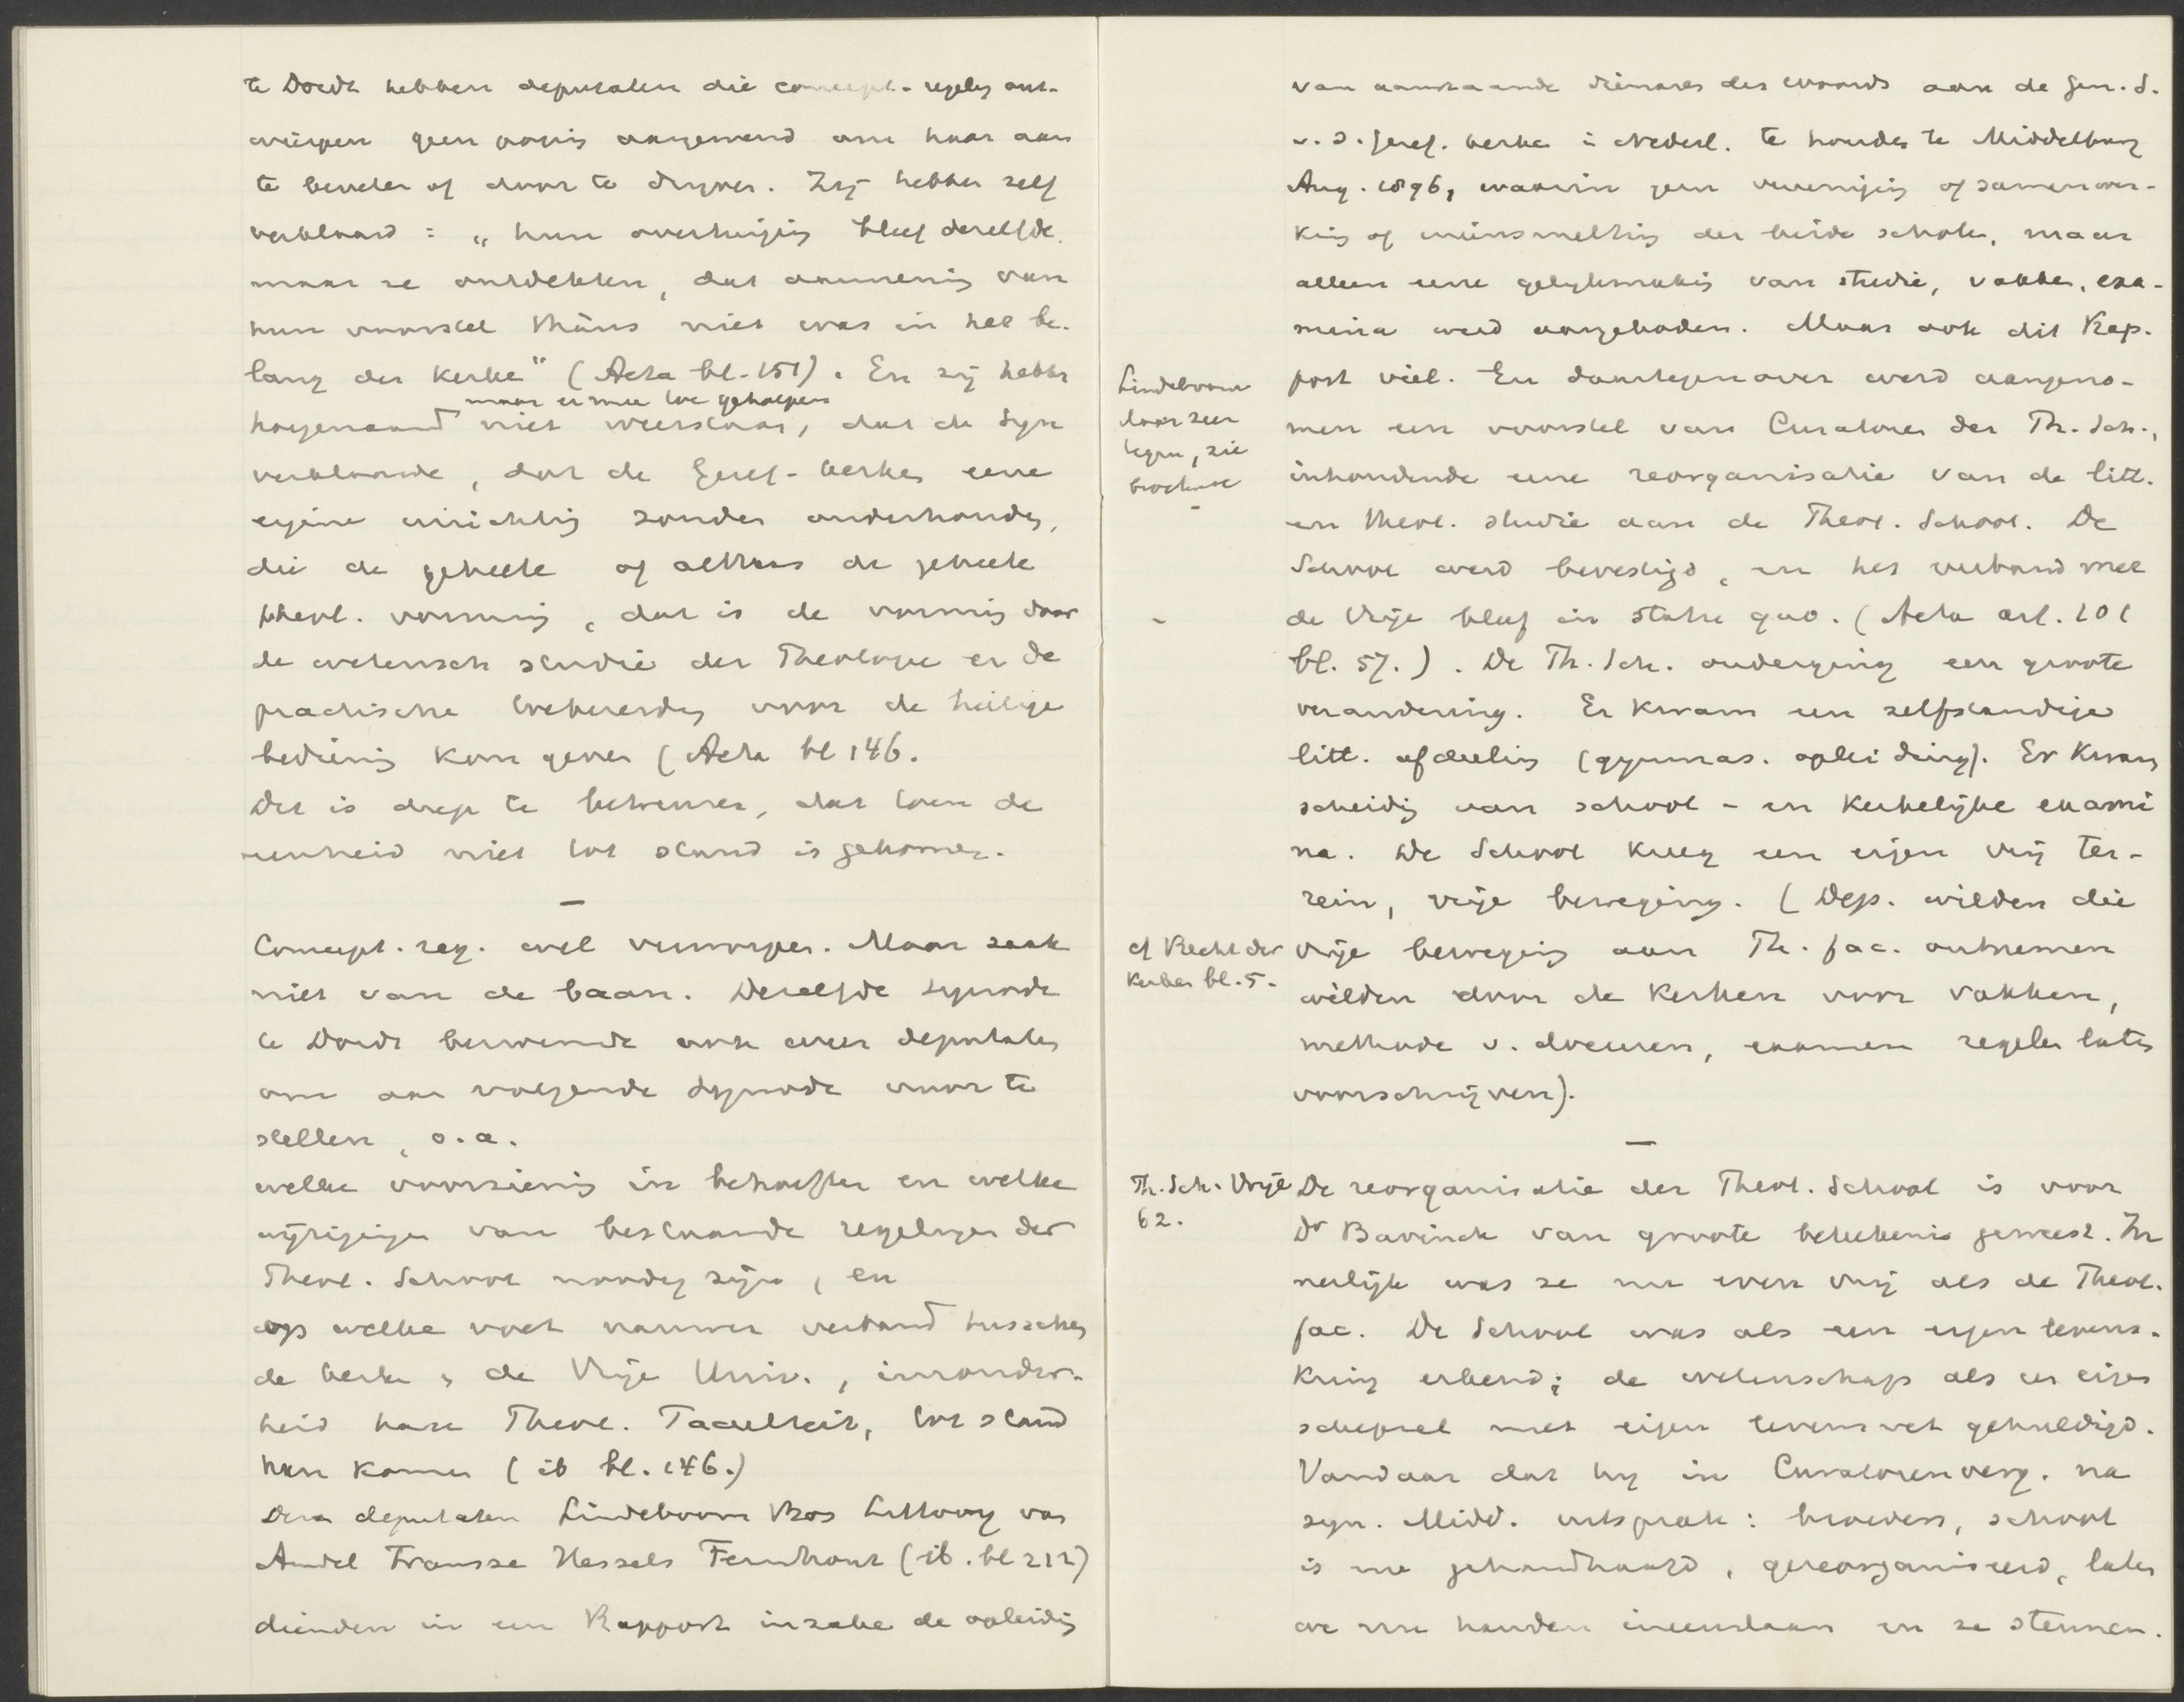 te Dordt hebben deputaten die concept-regeling ont-
worpen geen poging aangewend om haar aan
te bevelen of door te drijven. Zij hebben zelf
verklaard: „hun overtuiging bleef dezelfde,
maar ze ontdekten, dat aanneming van
hun voorstel thans niet was in het be-
lang der Kerken" (Acta bl. 151). En zij hebben
maar er mee toe geholpen
hoegenaamd niet weerstaan, dat de Syn
verklaarde, dat de Geref. kerken eene
eigene inrichting zouden onderhouden,
die de geheele of althans de geheele
theol. vorming, dat is de vorming door
de wetensch studie der Theologie en de
practische toebereiding voor de heilige
bediening kon geven (Acta bl 146.
Het is diep te betreuren, dat toen de
eenheid niet tot stand is gekomen.
—
Concept. reg. wel verworpen. Maar zaak
niet van de baan. Dezelfde synode
te Dordt benoemde ook weer deputaten
om aan volgende synode voor te
stellen, o.a.
welke voorziening in behoeften en welke
wijzigingen van bestaande regelingen der
Theol. School noodig zijn, en
op welke voet nauwer verband tusschen
de kerken en de Vrije Univ., inzonder-
heid hare Theol. Faculteit, tot stand
kan komen (ib bl. 146.)
Deze deputaten Lindeboom Bos Littooy van
Andel Fransse Hessels Fernhout (ib. bl 212)
dienden in een Rapport inzake de opleiding
van aanstaande dienaren des woords aan de Gen. S.
v. d. Geref. kerken in Nederl. te houden te Middelburg
Aug. 1896, waarin geen vereeniging of samenwer-
king of ineensmelting der beide scholen, maar
alleen eene gelijkmaking van studie, vakken, exa-
mina werd aangeboden. Maar ook dit Rap-
port viel. En daartegenover werd aangeno-
men een voorstel van Curatoren der Th. Sch.,
inhoudende eene reorganisatie van de litt.
en theol. studie aan de Theol. School. De
School werd bevestigd, en het verband met
de Vrije bleef in statu quo. (Acta art. 101
bl. 57.). De Th. Sch. onderging een groote
verandering. Er kwam een zelfstandige
litt. afdeeling (gymnas. opleiding). Er kwam
scheiding van school- en kerkelijke exami
na. De School kreeg een eigen vrij ter-
rein, vrije beweging. (Dep. wilden die
vrije beweging aan Th. fac. ontnemen
wilden door de Kerken voor vakken,
methode v. doceeren, examen regelen laten
voorschrijven).
—
De reorganisatie der Theol. School is voor
Dr Bavinck van groote beteekenis geweest. In
nerlijk was ze nu even vrij als de Theol.
fac. De School was als een eigen levens-
kring erkend; de wetenschap als een eigen
schepsel met eigen levenswet gehuldigd.
Vandaar dat hij in Curatorenverg. na
syn. Midd. uitsprak: broeders, school
is nu gehandhaafd, gereorganiseerd, laten
we nu handen ineenslaan en ze steunen.
Lindeboom
daar zeer
tegen, zie
brochure
cf Recht der
Kerken bl. 5.
Th. Sch. Vrije
62.